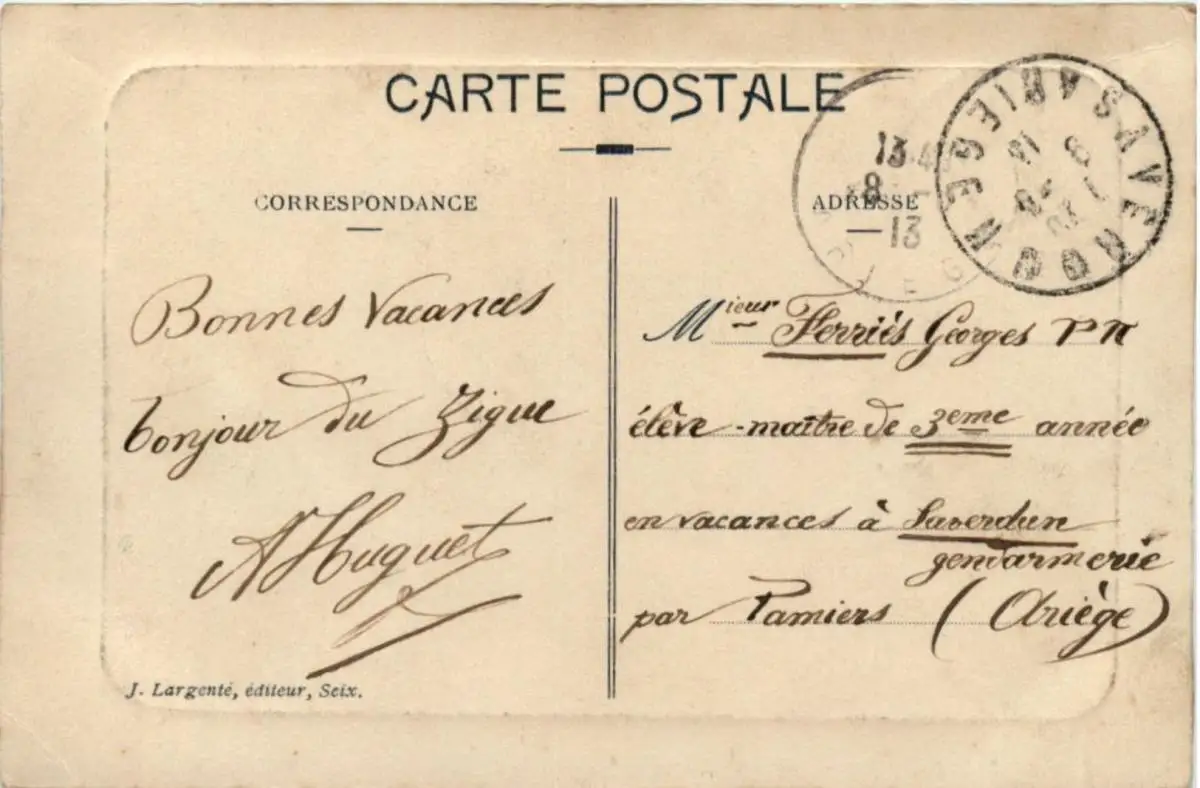 CARTE POSTALE
CORRESPONDANCE
ADRESSE
13
8
13
SAVERDUN
ARIEGE
Bonnes Vacances
bonjour du Zigue
AHuguet
J. Largenté, éditeur, Seix.
Mieur Ferriès Georges
élève-maître de 3eme année
en vacances à Saverdun
gendarmerie
par Pamiers (Ariège)